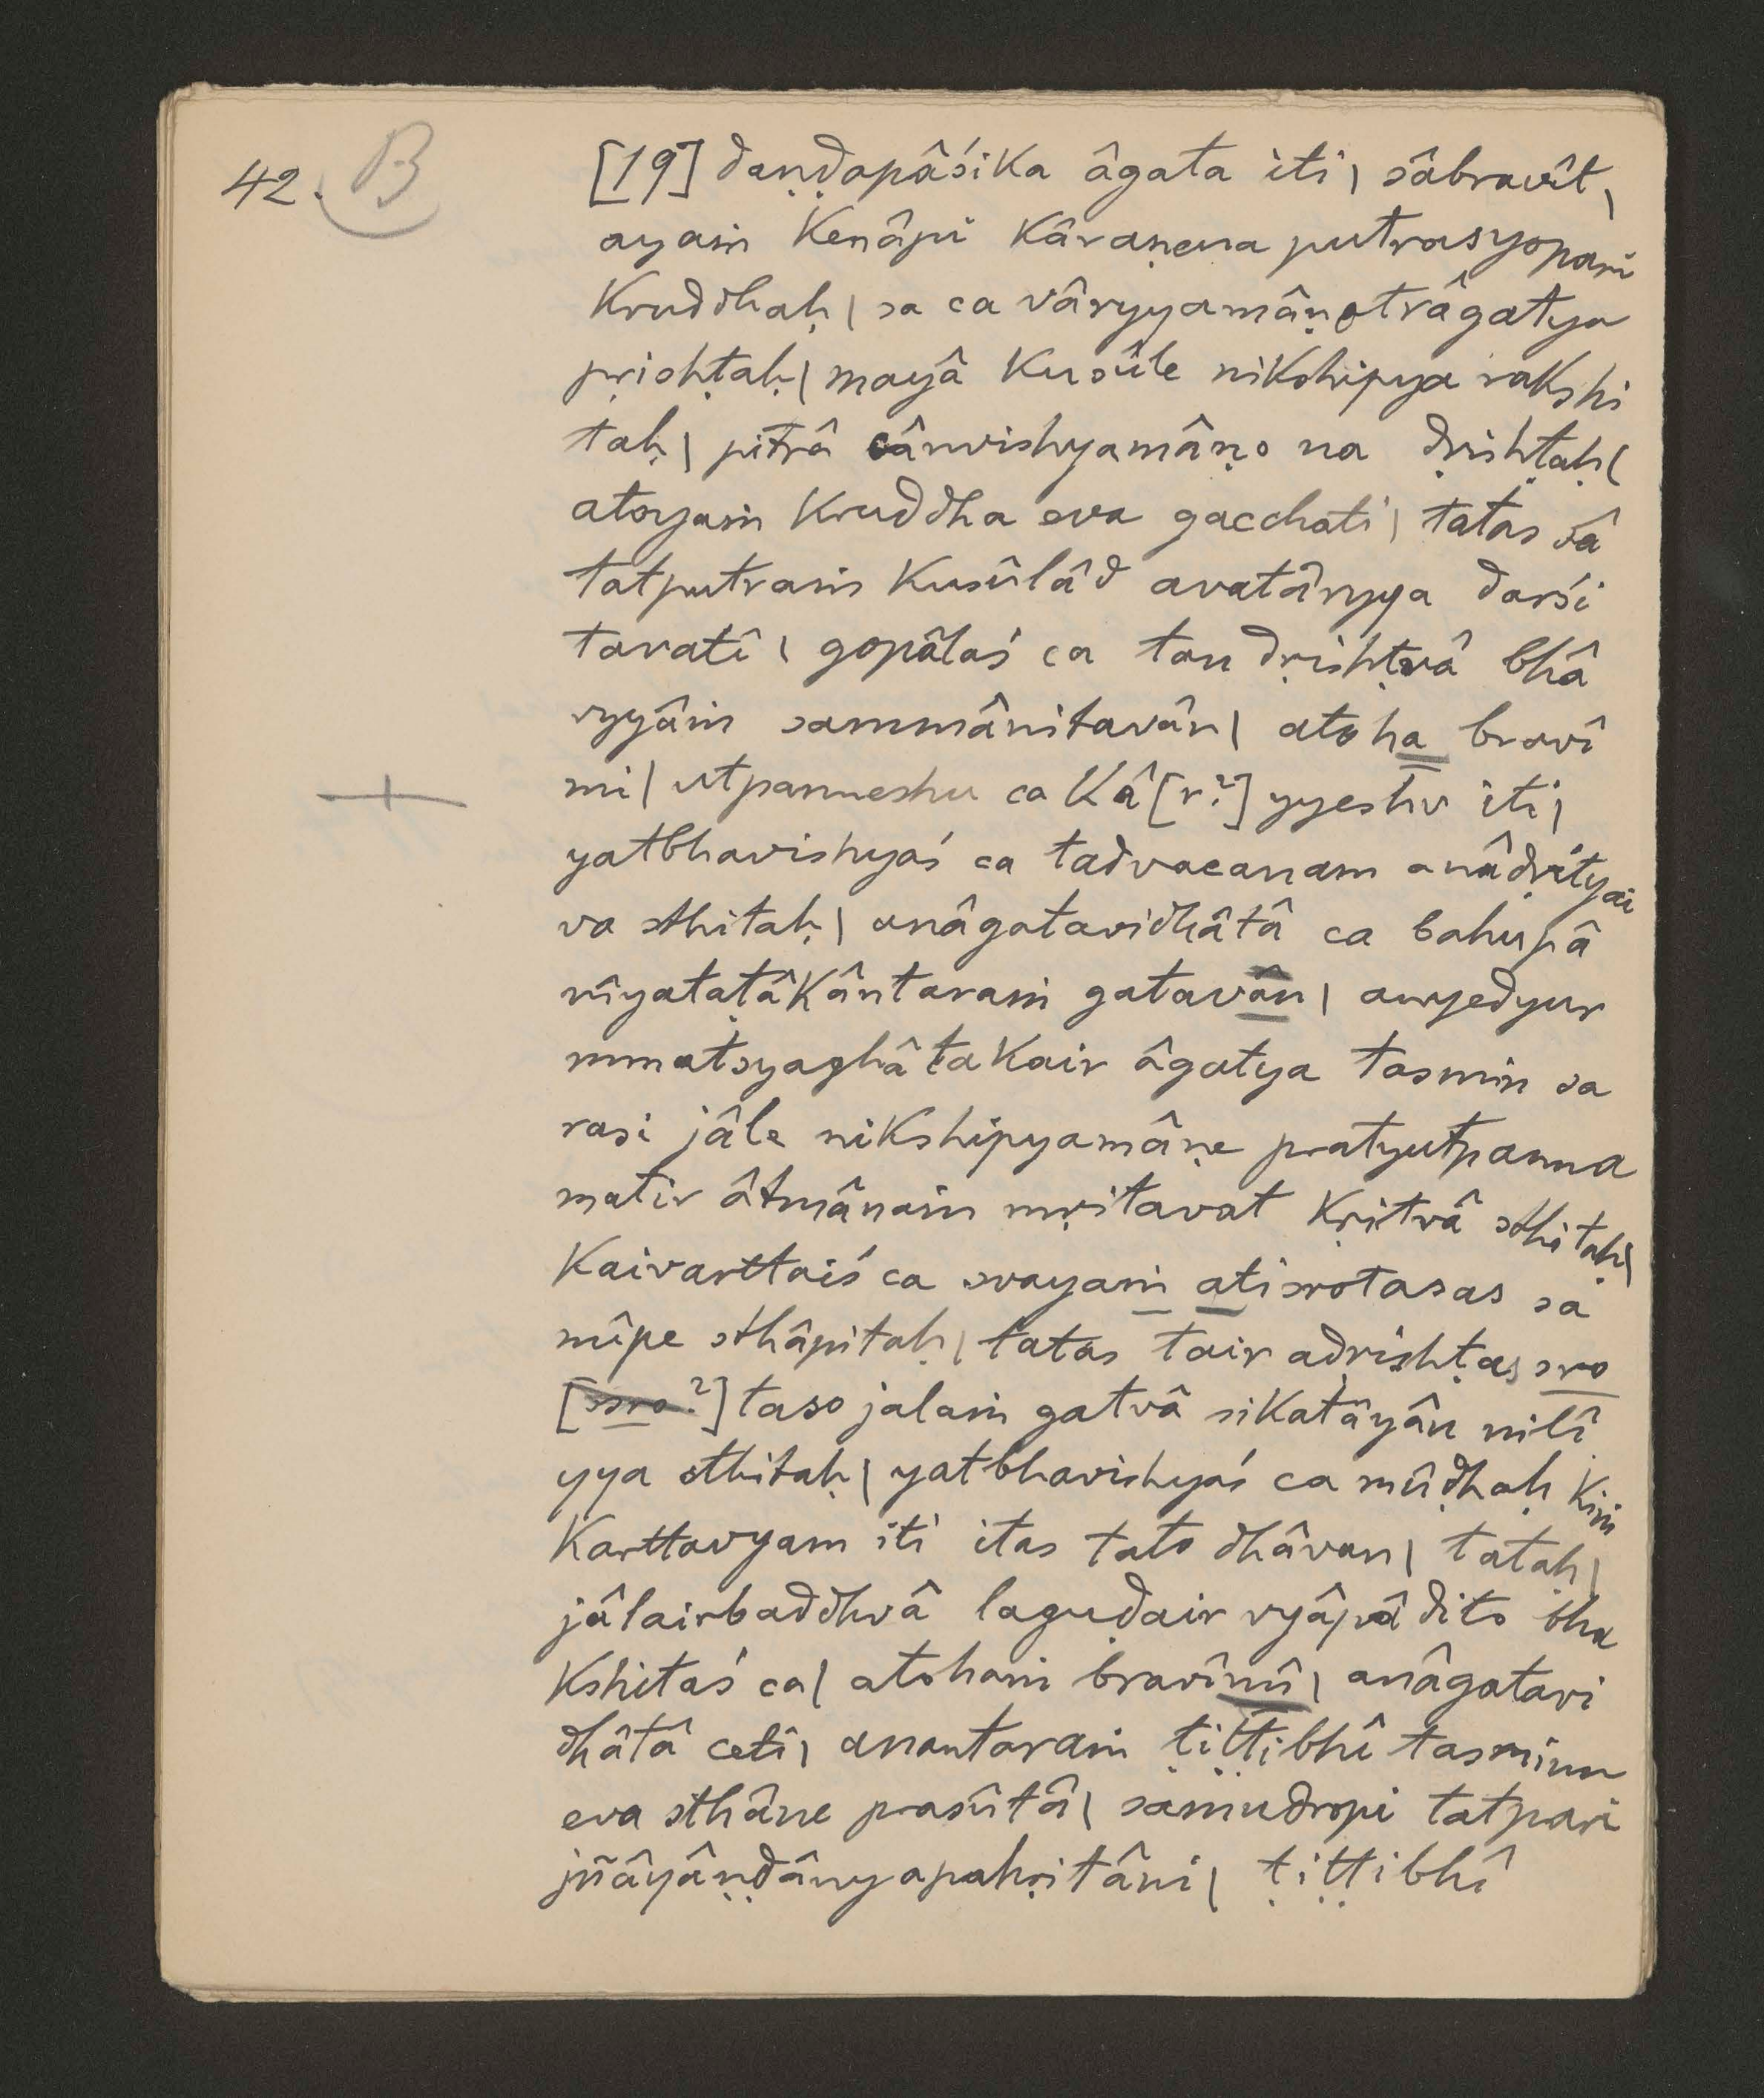 42. B
[19] daṇḍapâśika âgata iti | sâbravît |
ayaṁ kenâpi kâraṇena putrasyopari
kruddhaḥ | sa ca vâryyamâṇotrâgatya
pṛishṭaḥ | mayâ kusûle nikshipya rakshi
taḥ | pitrâ cânvishyamâṇo na dṛishṭaḥ |
atoyaṁ kruddha eva gacchati | tatas sâ
tatputraṁ kusûlâd avatâryya darśi
tavatî | gopâlaś ca tan dṛishṭvâ bhâ
ryyâṁ sammânitavân | atoha bravî
mi | utpanneshu ca kâ[r?]yyeshv iti |
yatbhavishyaś ca tadvacanam anâdṛityai
va sthitaḥ | anâgatavidhâtâ ca bahupâ
nîyataṭâkântaraṁ gatavân | anyedyur
mmatsyaghâtakair âgatya tasmin sa
rasi jâle nikshipyamâṇe pratyutpanna
matir âtmânaṁ mṛitavat kṛitvâ sthitaḥ |
kaivarttaiś ca svayaṁ atisrotasas sa
mîpe sthâpitaḥ | tatas tair adṛishṭas sro
[ssro?] taso jalaṁ gatvâ sikatâyân nilî
yya sthitaḥ | yatbhavishyaś ca mûḍhaḥ kiṁ
karttavyam iti itas tato dhâvan | tataḥ |
jâlairbaddhvâ laguḍair vyâpâdito bha
kshitaś ca | atohaṁ bravîmi | anâgatavi
dhâtâ ceti | anantaraṁ ṭiṭṭibhî tasminn
eva sthâne prasûtâ | samudropi tatpari
jñâyâṇḍâny apahṛitâni | ṭiṭṭibhî